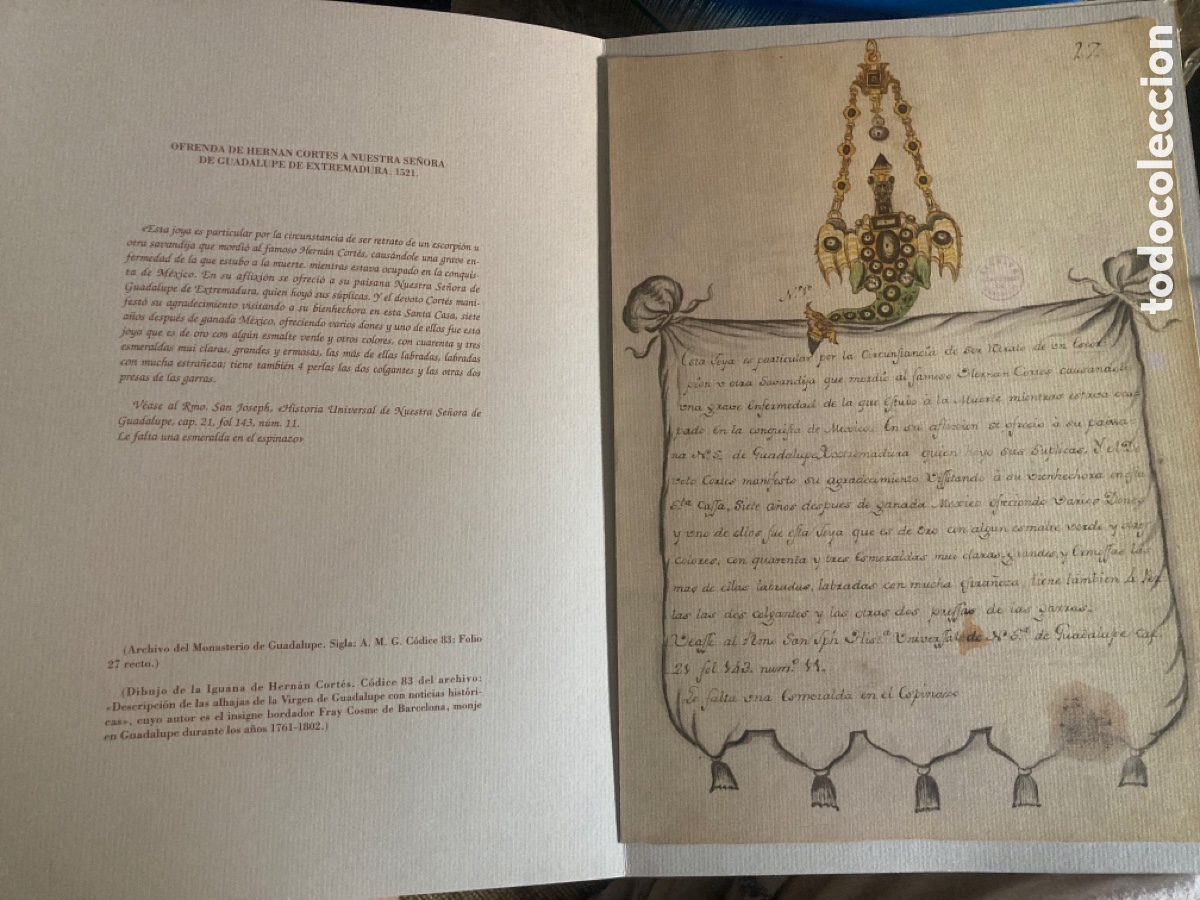 OFRENDA DE HERNAN CORTES A NUESTRA SEÑORA
DE GUADALUPE DE EXTREMADURA. 1521.
«Esta joya es particular por la circunstancia de ser retrato de un escorpión u
otra savandija que mordió al famoso Hernán Cortés, causándole una grave en-
fermedad de la que estubo a la muerte, mientras estava ocupado en la conquis-
ta de México. En su aflixión se ofreció a su paisana Nuestra Señora de
Guadalupe de Extremadura, quien hoyó sus súplicas. Y el devoto Cortés mani-
festó su agradecimiento visitando a su bienhechora en esta Santa Casa, siete
años después de ganada México, ofreciendo varios dones y uno de ellos fue esta
joya que es de oro con algún esmalte verde y otros colores, con cuarenta y tres
esmeraldas mui claras, grandes y ermosas, las más de ellas labradas, labradas
con mucha estrañeza; tiene también 4 perlas las dos colgantes y las otras dos
presas de las garras.
Véase al Rmo. San Joseph, «Historia Universal de Nuestra Señora de
Guadalupe, cap. 21, fol 143, núm. 11.
Le falta una esmeralda en el espinazo»
(Archivo del Monasterio de Guadalupe. Sigla: A. M. G. Códice 83: Folio
27 recto.)
(Dibujo de la Iguana de Hernán Cortés. Códice 83 del archivo:
«Descripción de las alhajas de la Virgen de Guadalupe con noticias históri-
cas», cuyo autor es el insigne bordador Fray Cosme de Barcelona, monje
en Guadalupe durante los años 1761-1802.)
27
Esta Joya es particular por la Circunstancia de Ser Retrato de un Escor-
pion v otra Savandija que mordió al famoso Hernan Cortes causandole
una grave Enfermedad de la que estubo à la Muerte mientras estava ocu-
pado en la conquista de Mexico. En su afliccion se ofrecio à su paisa-
na N. S. de Guadalupe Extremadura quien hoyo sus Suplicas. Y el De-
voto Cortes manifesto su agradecimiento Vissitando à su vienhechora en esta
Sta Cassa, Siete años despues de ganada Mexico ofreciendo Varios Dones
y uno de ellos fue esta Joya que es de Oro con algun esmalte verde y otros
colores, con quarenta y tres Esmeraldas mui claras, grandes, y Ermossas las
mas de ellas labradas, labradas con mucha estrañeza, tiene tambien 4 Per-
las las dos colgantes y las otras dos pressas de las garras.
Veasse al Rmo San Jph Hista Universsal de N. Sa de Guadalupe cap.
21 fol 143. num.º 11.
Le falta una Esmeralda en el Espinasso
todocoleccion